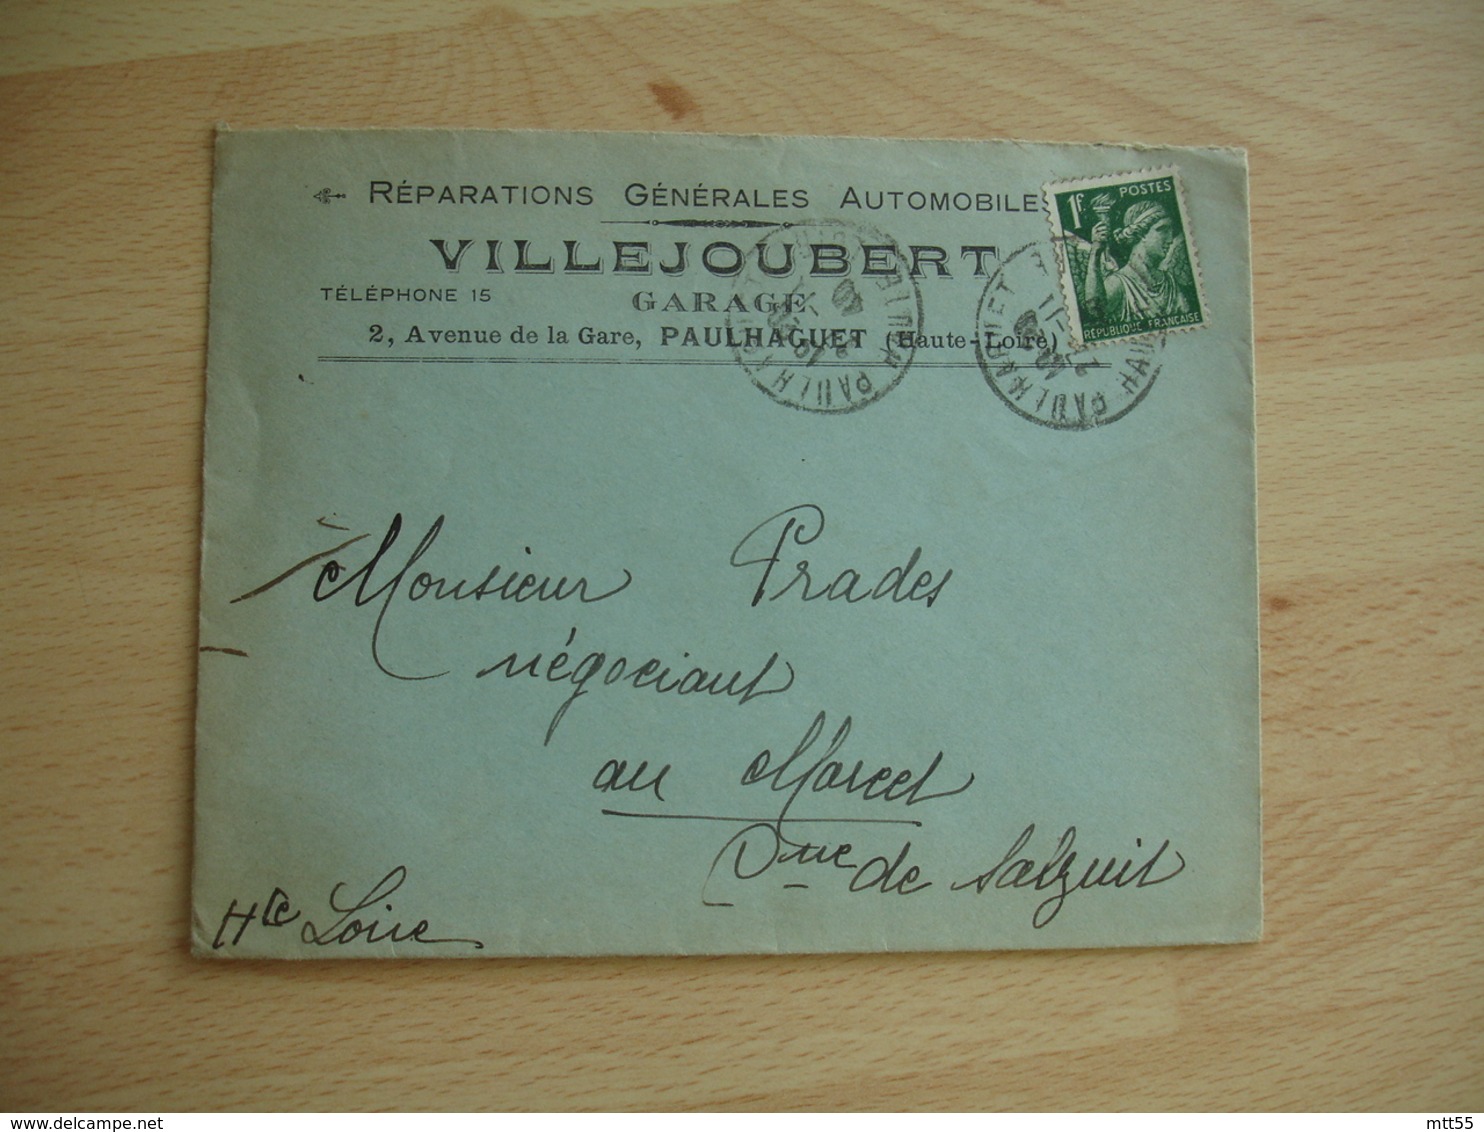 RÉPARATIONS GÉNÉRALES AUTOMOBILE
VILLEJOUBERT
TÉLÉPHONE 15
GARAGE
2, Avenue de la Gare, PAULHAGUET (Haute-Loire)
1F POSTES
RÉPUBLIQUE FRANÇAISE
PAULHAGUET
PAULHAGUET
Monsieur Prades
négociant
au Marcet
de Salzuit
Hte Loire
mtt55